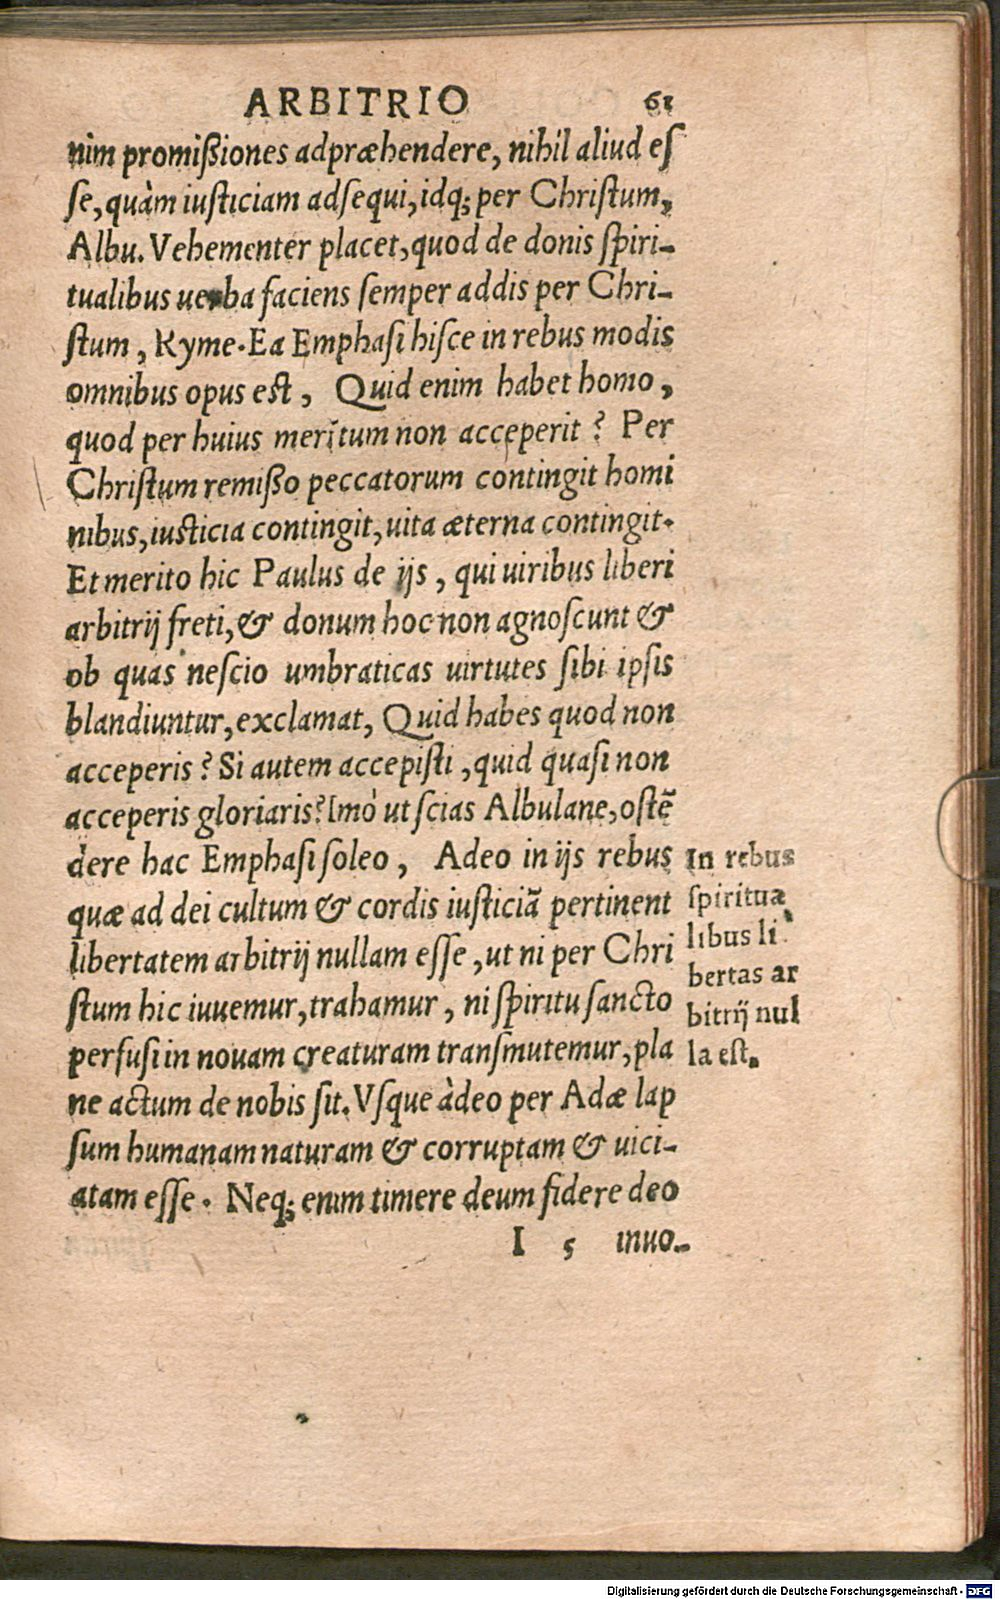 ARBITRIO 61
nim promißiones adpræhendere, nihil aliud eſ
ſe, quàm iuſticiam adſequi, idq; per Chriſtum,
Albu. Vehementer placet, quod de donis ſpiri-
tualibus uerba faciens ſemper addis per Chri-
ſtum, Kyme. Ea Emphaſi hiſce in rebus modis
omnibus opus eſt, Quid enim habet homo,
quod per huius meritum non acceperit? Per
Chriſtum remißo peccatorum contingit homi
nibus, iuſticia contingit, uita æterna contingit.
Et merito hic Paulus de ijs, qui uiribus liberi
arbitrij freti, & donum hoc non agnoſcunt &
ob quas neſcio umbraticas uirtutes ſibi ipſis
blandiuntur, exclamat, Quid habes quod non
acceperis? Si autem accepiſti, quid quaſi non
acceperis gloriaris? Imò ut ſcias Albulane, oſtē
dere hac Emphaſi ſoleo, Adeo in ijs rebus
quæ ad dei cultum & cordis iuſticiā pertinent
libertatem arbitrij nullam eſſe, ut ni per Chri
ſtum hic iuuemur, trahamur, ni ſpiritu ſancto
perfuſi in nouam creaturam tranſmutemur, pla
ne actum de nobis ſit. Vſque àdeo per Adæ lap
ſum humanam naturam & corruptam & uici-
atam eſſe. Neq; enim timere deum fidere deo
I 5 inuo-
In rebus
ſpiritua
libus li
bertas ar
bitrij nul
la eſt.
Digitalisierung gefördert durch die Deutsche Forschungsgemeinschaft - DFG